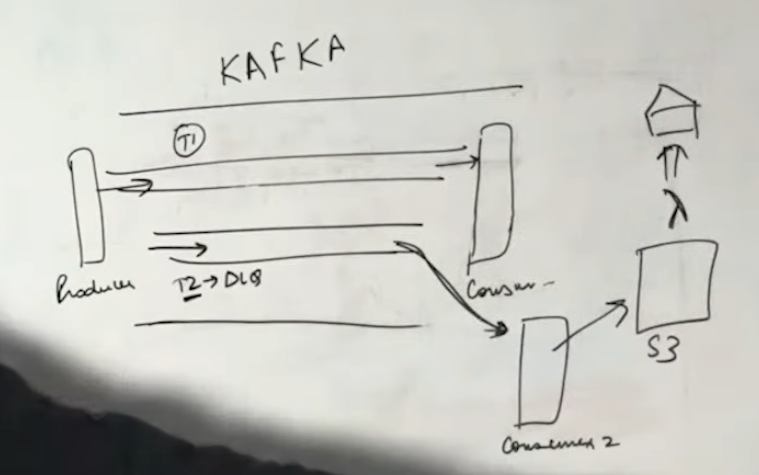 KAFKA
T1
Producer
T2 → DLQ
Consumer
λ
S3
Consumer 2